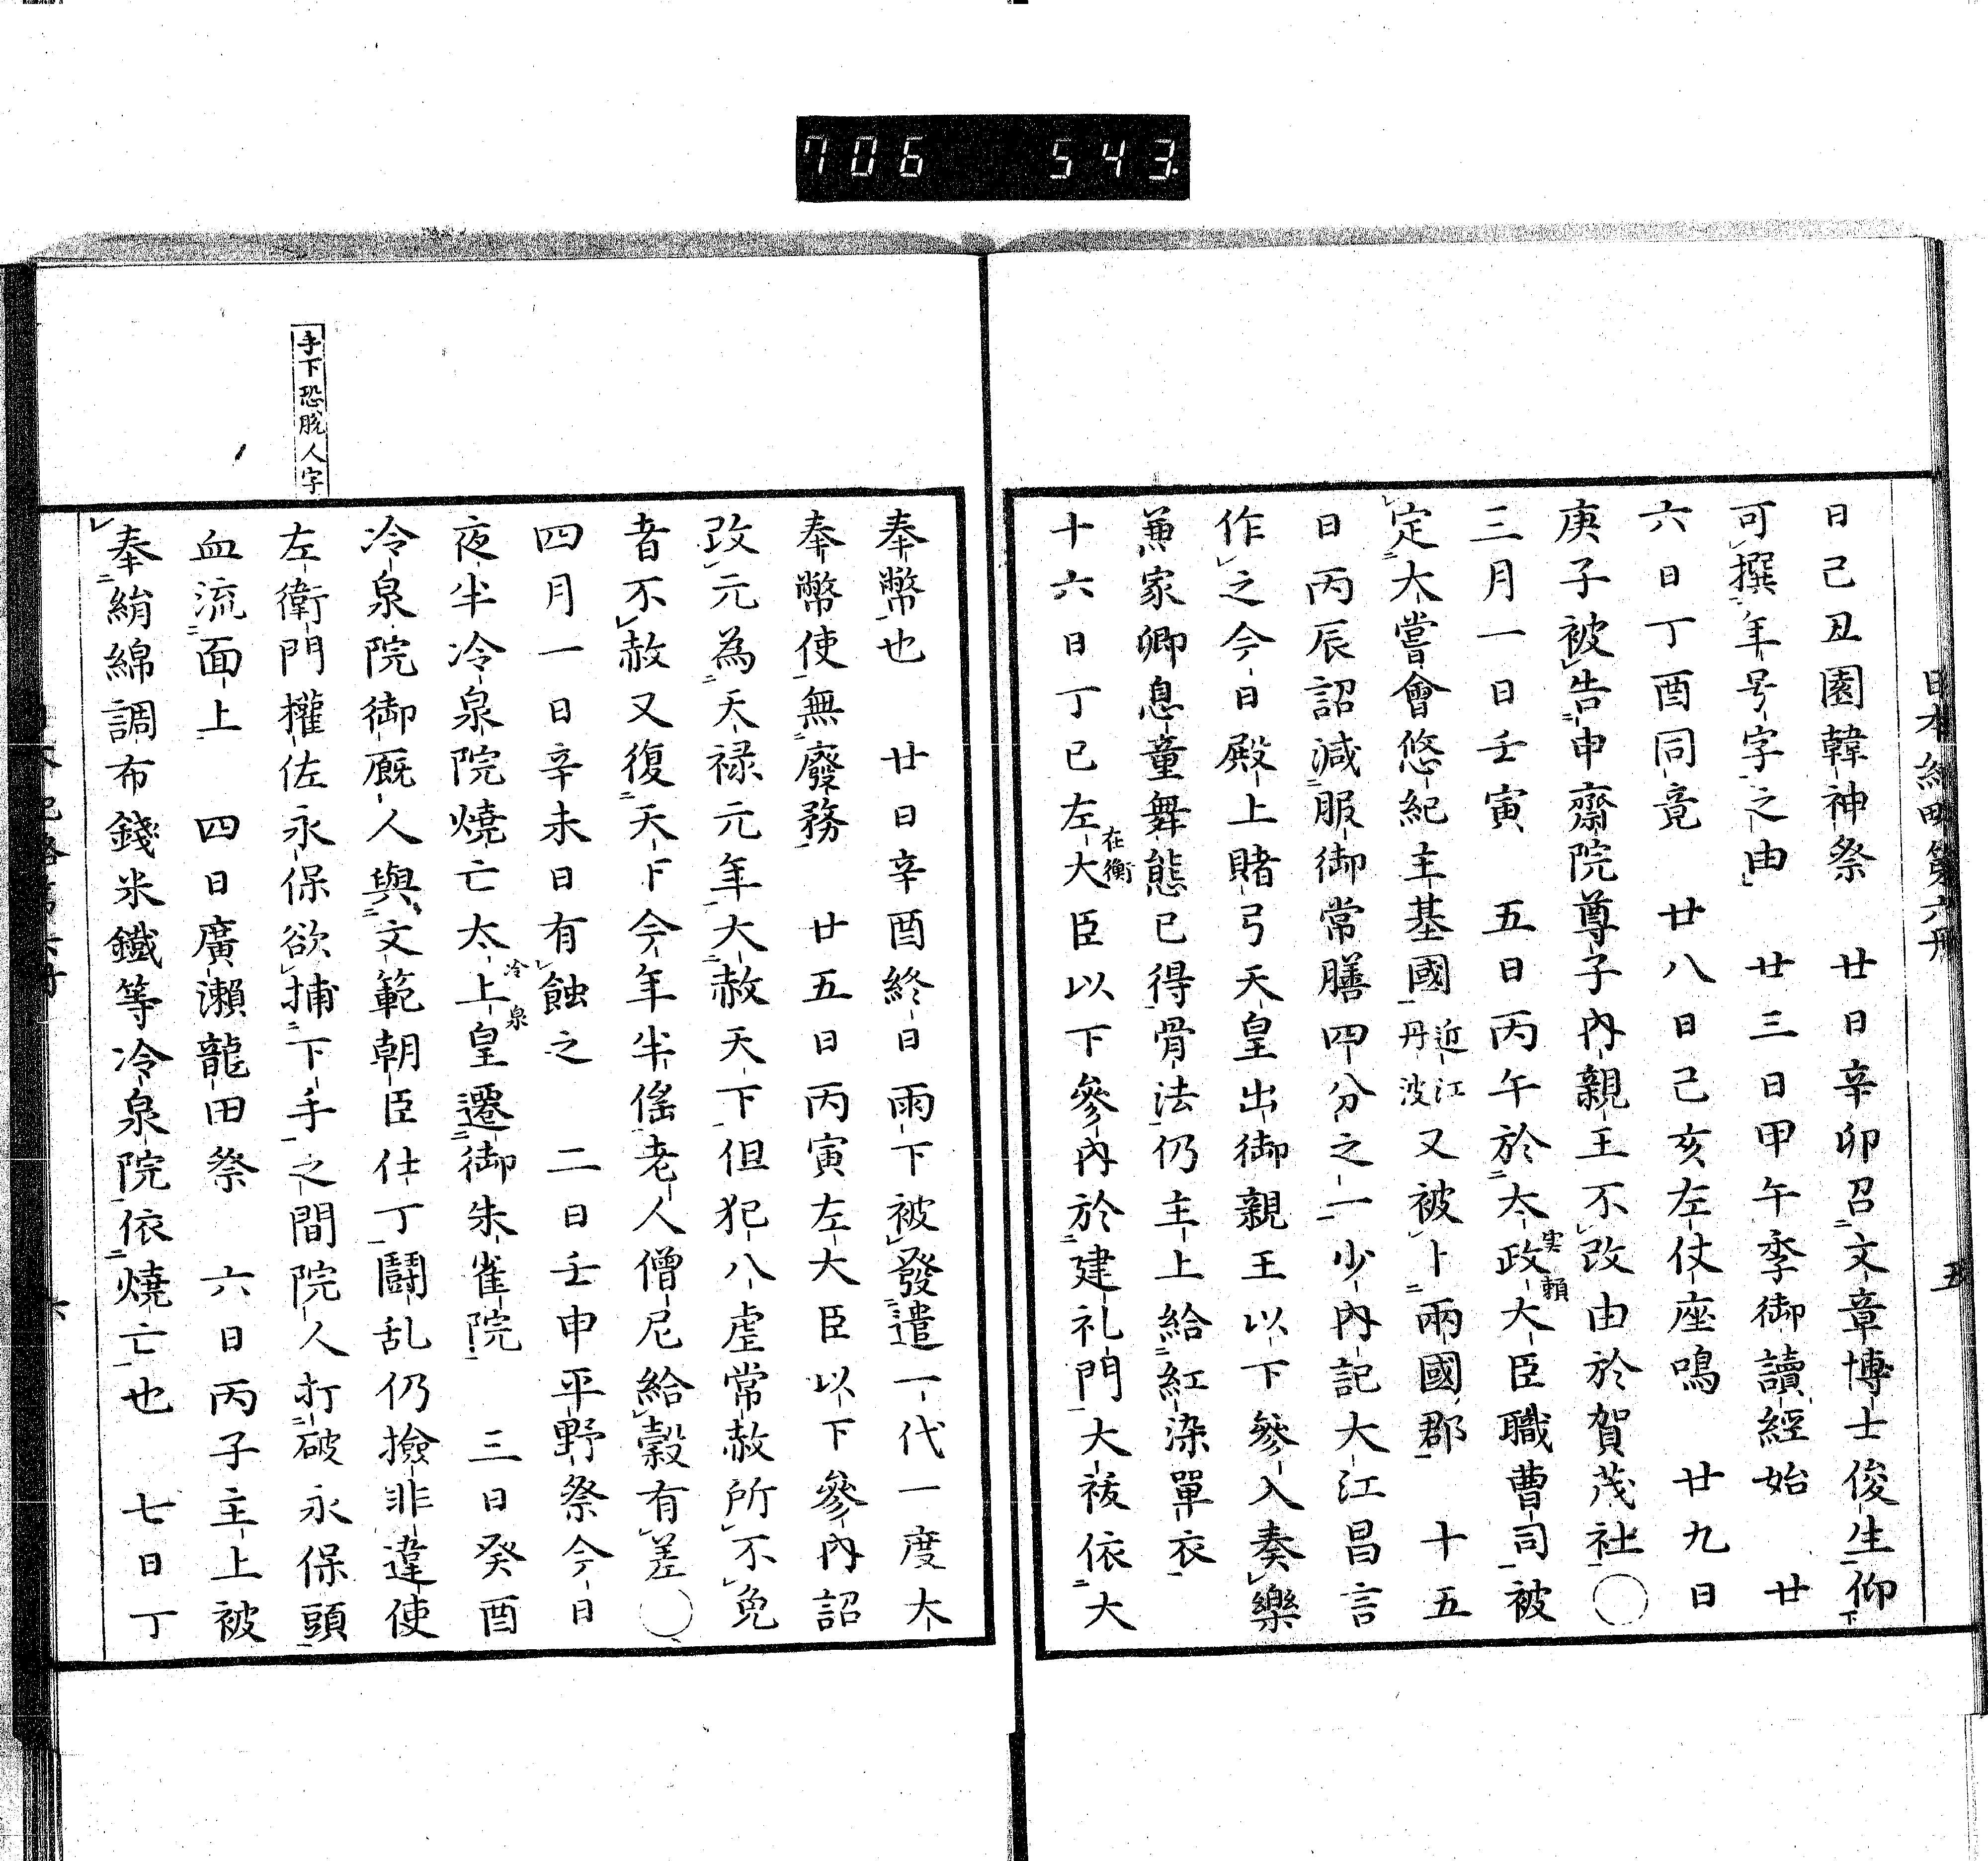 706 543
日本紀畧第六冊 五
日己丑園韓神祭 廿日辛卯召文章博士俊生仰
可撰年号字之由 廿三日甲午季御讀經始 廿
六日丁酉同竟 廿八日己亥左仗座鳴 廿九日
庚子被告申齋院尊子内親王不改由於賀茂社○
三月一日壬寅 五日丙午於太政大臣職曹司被
実頼
定大嘗會悠紀主基國近江丹波又被卜兩國郡 十五
日丙辰詔減服御常膳四分之一少内記大江昌言
作之今日殿上賭弓天皇出御親王以下參入奏樂
兼家卿息童舞態已得骨法仍主上給紅染單衣
十六日丁巳左大臣以下參内於建礼門大祓依大
在衡
奉幣也 廿日辛酉終日雨下被發遣一代一度大
奉幣使無廢務 廿五日丙寅左大臣以下參内詔
改元為天禄元年大赦天下但犯八虐常赦所不免
者不赦又復天下今年半徭老人僧尼給穀有差○
四月一日辛未日有蝕之 二日壬申平野祭今日
夜半冷泉院燒亡太上皇遷御朱雀院 三日癸酉
冷泉
冷泉院御厩人與文範朝臣仕丁鬪乱仍撿非違使
左衛門權佐永保欲捕下手之間院人打破永保頭
手下恐脱人字
血流面上 四日廣瀬龍田祭 六日丙子主上被
奉絹綿調布錢米鐵等冷泉院依燒亡也 七日丁
六